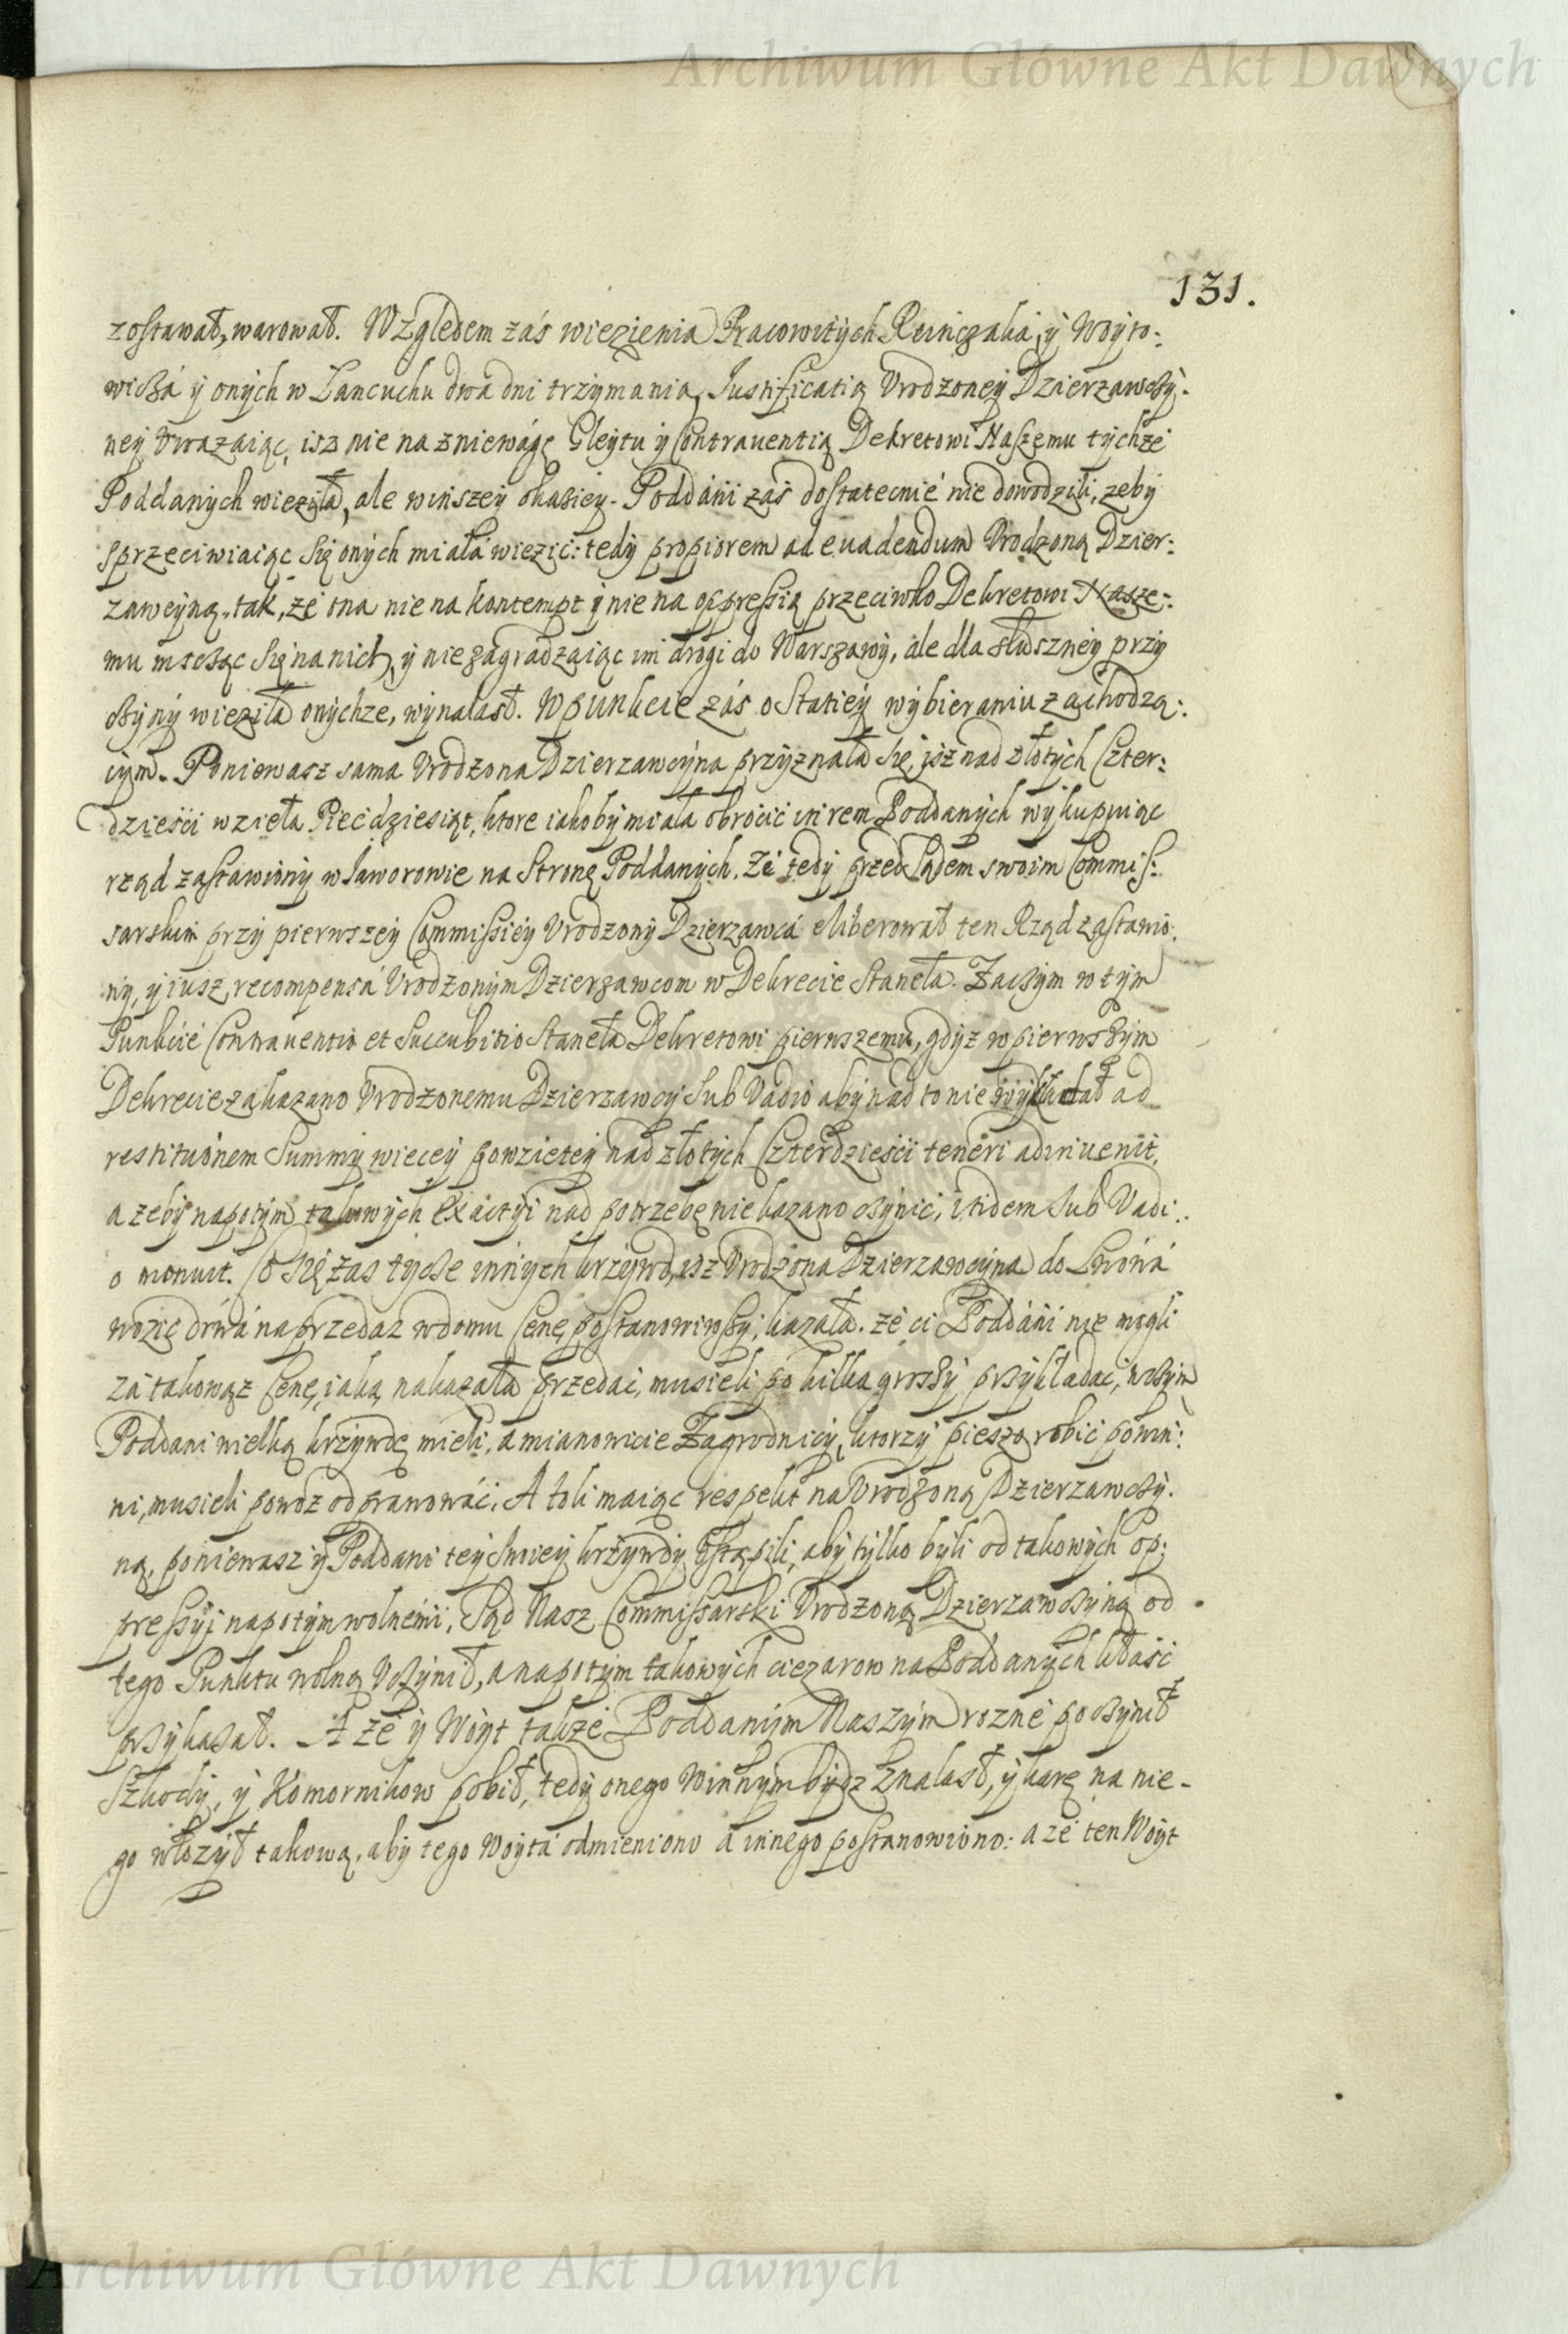 Archiwum Główne Akt Dawnych
131.
zostawał, warował. Względem záś wiezienia Pracowitych Reinczaka, y Woyto:
wicza y onych w Lancuchu dwa dni trzymania, Justificatią Vrodzoney Dzierzawczy:
ney Vwazaiąc, isz nie na zniewágę Gleytu y Contrauentią Dekretowi Naszemu tychże
Poddanych wieziła, ale winszey okasiey. Poddáni záś dostatecnie nie dowodzili, zeby
sprzeciwiaiąc się onych miała wiezic: tedy propiorem ad euadendum Vrodzoną Dzier:
zawcyną, tak, że ona nie na kontempt y nie na oppressią przeciwko Dekretowi Nasze:
mu mszcząc się na nich, y nie zagradzaiąc im drogi do Warszawy, ále dla słuszney przy
czyny wieziła onychze, wynalasł. W punkcie záś o Statiey wybieraniu zachodzą:
cym. Poniewasz sama Vrodzona Dzierzawcyna przyznała się, isz nad złotych Czter:
dzieści wzieła Piećdziesiąt, ktore iakoby miała obrócić in rem Poddanych wykupuiąc
rząd zastawiony w Jaworowie na Stronę Poddanych. Że tedy przed Sądem swoim Commis:
sarskim przy pierwszey Commissiey Vrodzony Dzierzawcá eliberował ten Rząd zastawio:
ny, y iusz recompensá Vrodzonym Dzierzawcom w Dekrecie Staneła. Zaczym w tym
Punkcie Contrauentio et Succubitio Staneła Dekretowi pierwszemu, gdyż w pierwszym
Dekrecie zakazano Vrodzonemu Dzierzawcy Sub Vadio aby nad to nie ad
restitutionem Summy wiecey powzietey nad złotych Czterdzieści teneri adinuenit,
a zeby napotym takowych exactyi nad potrzebę nie kazano czynic, itidem Sub Vadi:
o monuit. Co się zas tycze innych krzywd, isz Vrodzona Dzierzawcyna do Lwowá
wozic drwá na przedaz w domu Cenę postanowiwszy, kazała. że ci Poddáni nie mogli
zá takowąz Cenę, iaką nakazała przedac, musieli po kilka groszy przykładac, w czym
Poddani wielką krzywdę mieli, a mianowicie Zagrodnicy, ktorzy pieszo robić powin:
ni, musieli powoz odprawowáć. A toli maiąc respekt na Vrodzoną Dzierzawczy:
ną, poniewasz y Poddani tey swiey krzywdy Vstąpili, aby tylko byli od takowych op:
pressyi napotym wolnémi. Sąd Nasz Commissarski Vrodzoną Dzierzawczyną od
tego Punktu wolną Vczynił, a napotym takowych ciezarow na Poddanych kłasć
przykasał. A że y Woyt także Poddanym Naszym rozne poczynił
Szkody, y Komornikow pobił, tedy onego Winnym bydz znalasł, y karę na nie-
go włozył takową, aby tego Woytá odmieniono á innego postanowiono: a ze ten Woyt
Archiwum Główne Akt Dawnych